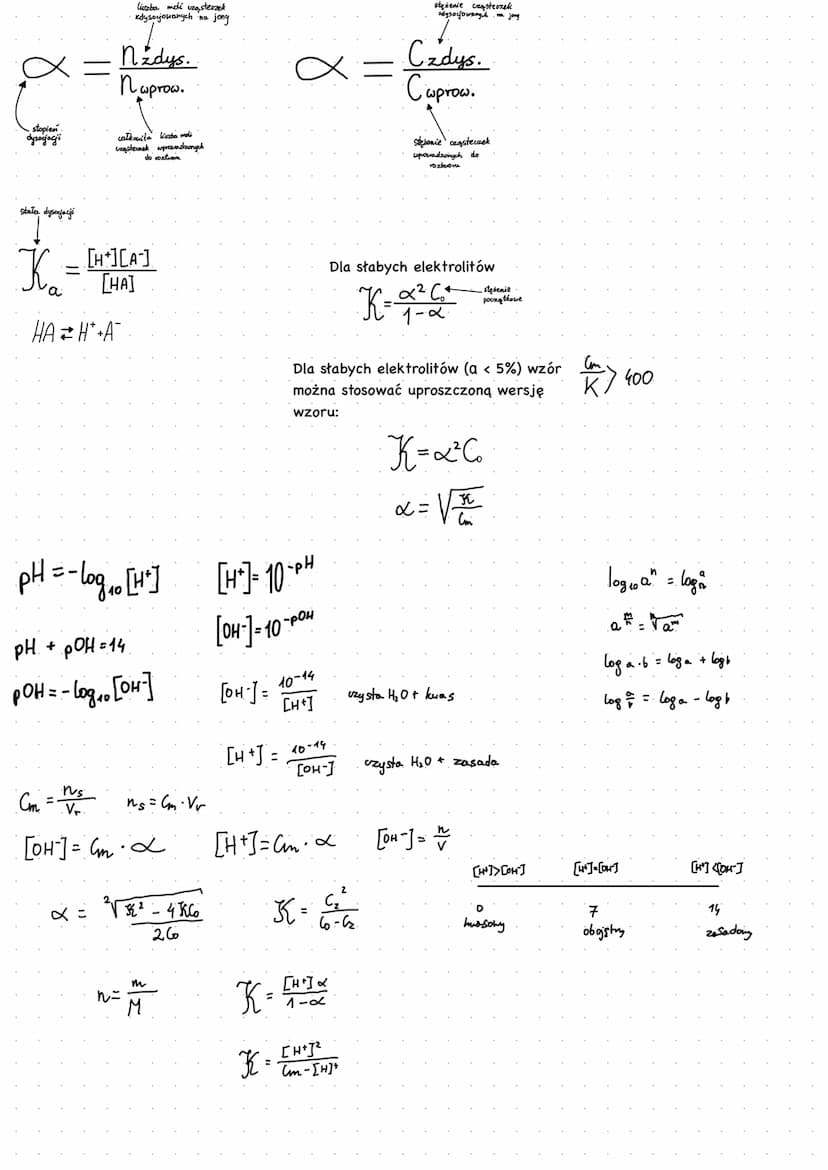 liczba moli cząsteczek
zdysocjowanych na jony
α = n zdys. / n wprow.
stopień
dysocjacji
całkowita liczba moli
cząsteczek wprowadzonych
do roztworu
stężenie cząsteczek
zdysocjowanych na jony
α = C zdys. / C wprow.
stężenie cząsteczek
wprowadzonych do
roztworu
stała dysocjacji
Kₐ = [H⁺][A⁻] / [HA]
HA ⇄ H⁺ + A⁻
Dla słabych elektrolitów
K = α² C₀ / 1 - α
stężenie
początkowe
Dla słabych elektrolitów (α < 5%) wzór
można stosować uproszczoną wersję
wzoru:
Cm / K > 400
K = α² C₀
α = √(K / Cm)
pH = -log₁₀ [H⁺]
[H⁺] = 10^-pH
log₁₀ aⁿ = log
[OH⁻] = 10^-pOH
a^(m/n) = ⁿ√aᵐ
pH + pOH = 14
log a · b = log a + log b
pOH = -log₁₀ [OH⁻]
[OH⁻] = 10^-14 / [H⁺] czysta H₂O + kwas
log a/b = log a - log b
[H⁺] = 10^-14 / [OH⁻] czysta H₂O + zasada
Cm = ns / Vr
ns = Cm · Vr
[OH⁻] = Cm · α
[H⁺] = Cm · α
[OH⁻] = n / V
[H⁺] > [OH⁻] [H⁺] = [OH⁻] [H⁺] < [OH⁻]
0 7 14
kwasowy obojętny zasadowy
α = ²√(K² - 4KC₀) / 2C₀
K = C₂² / C₀ - C₂
n = m / M
K = [H⁺] α / 1 - α
K = [H⁺]² / Cm - [H]⁺